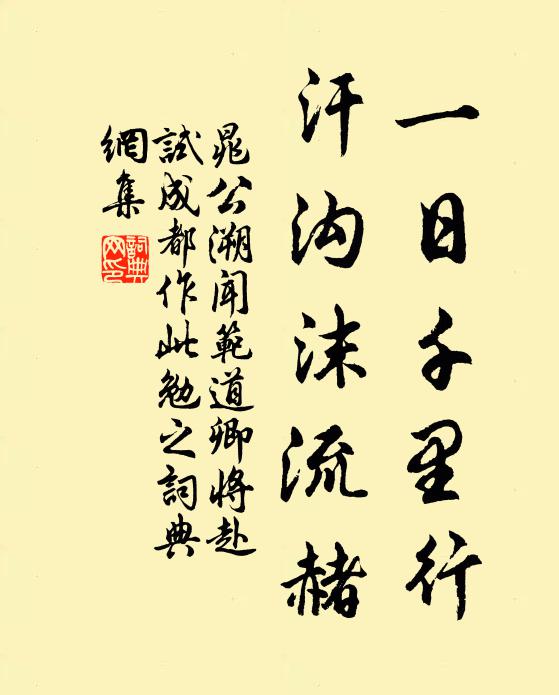 一日千里行
汗沟沫流赭
晁公溯闻範道卿將赴
試成都作此勉之詞典
網集
詞典
网印